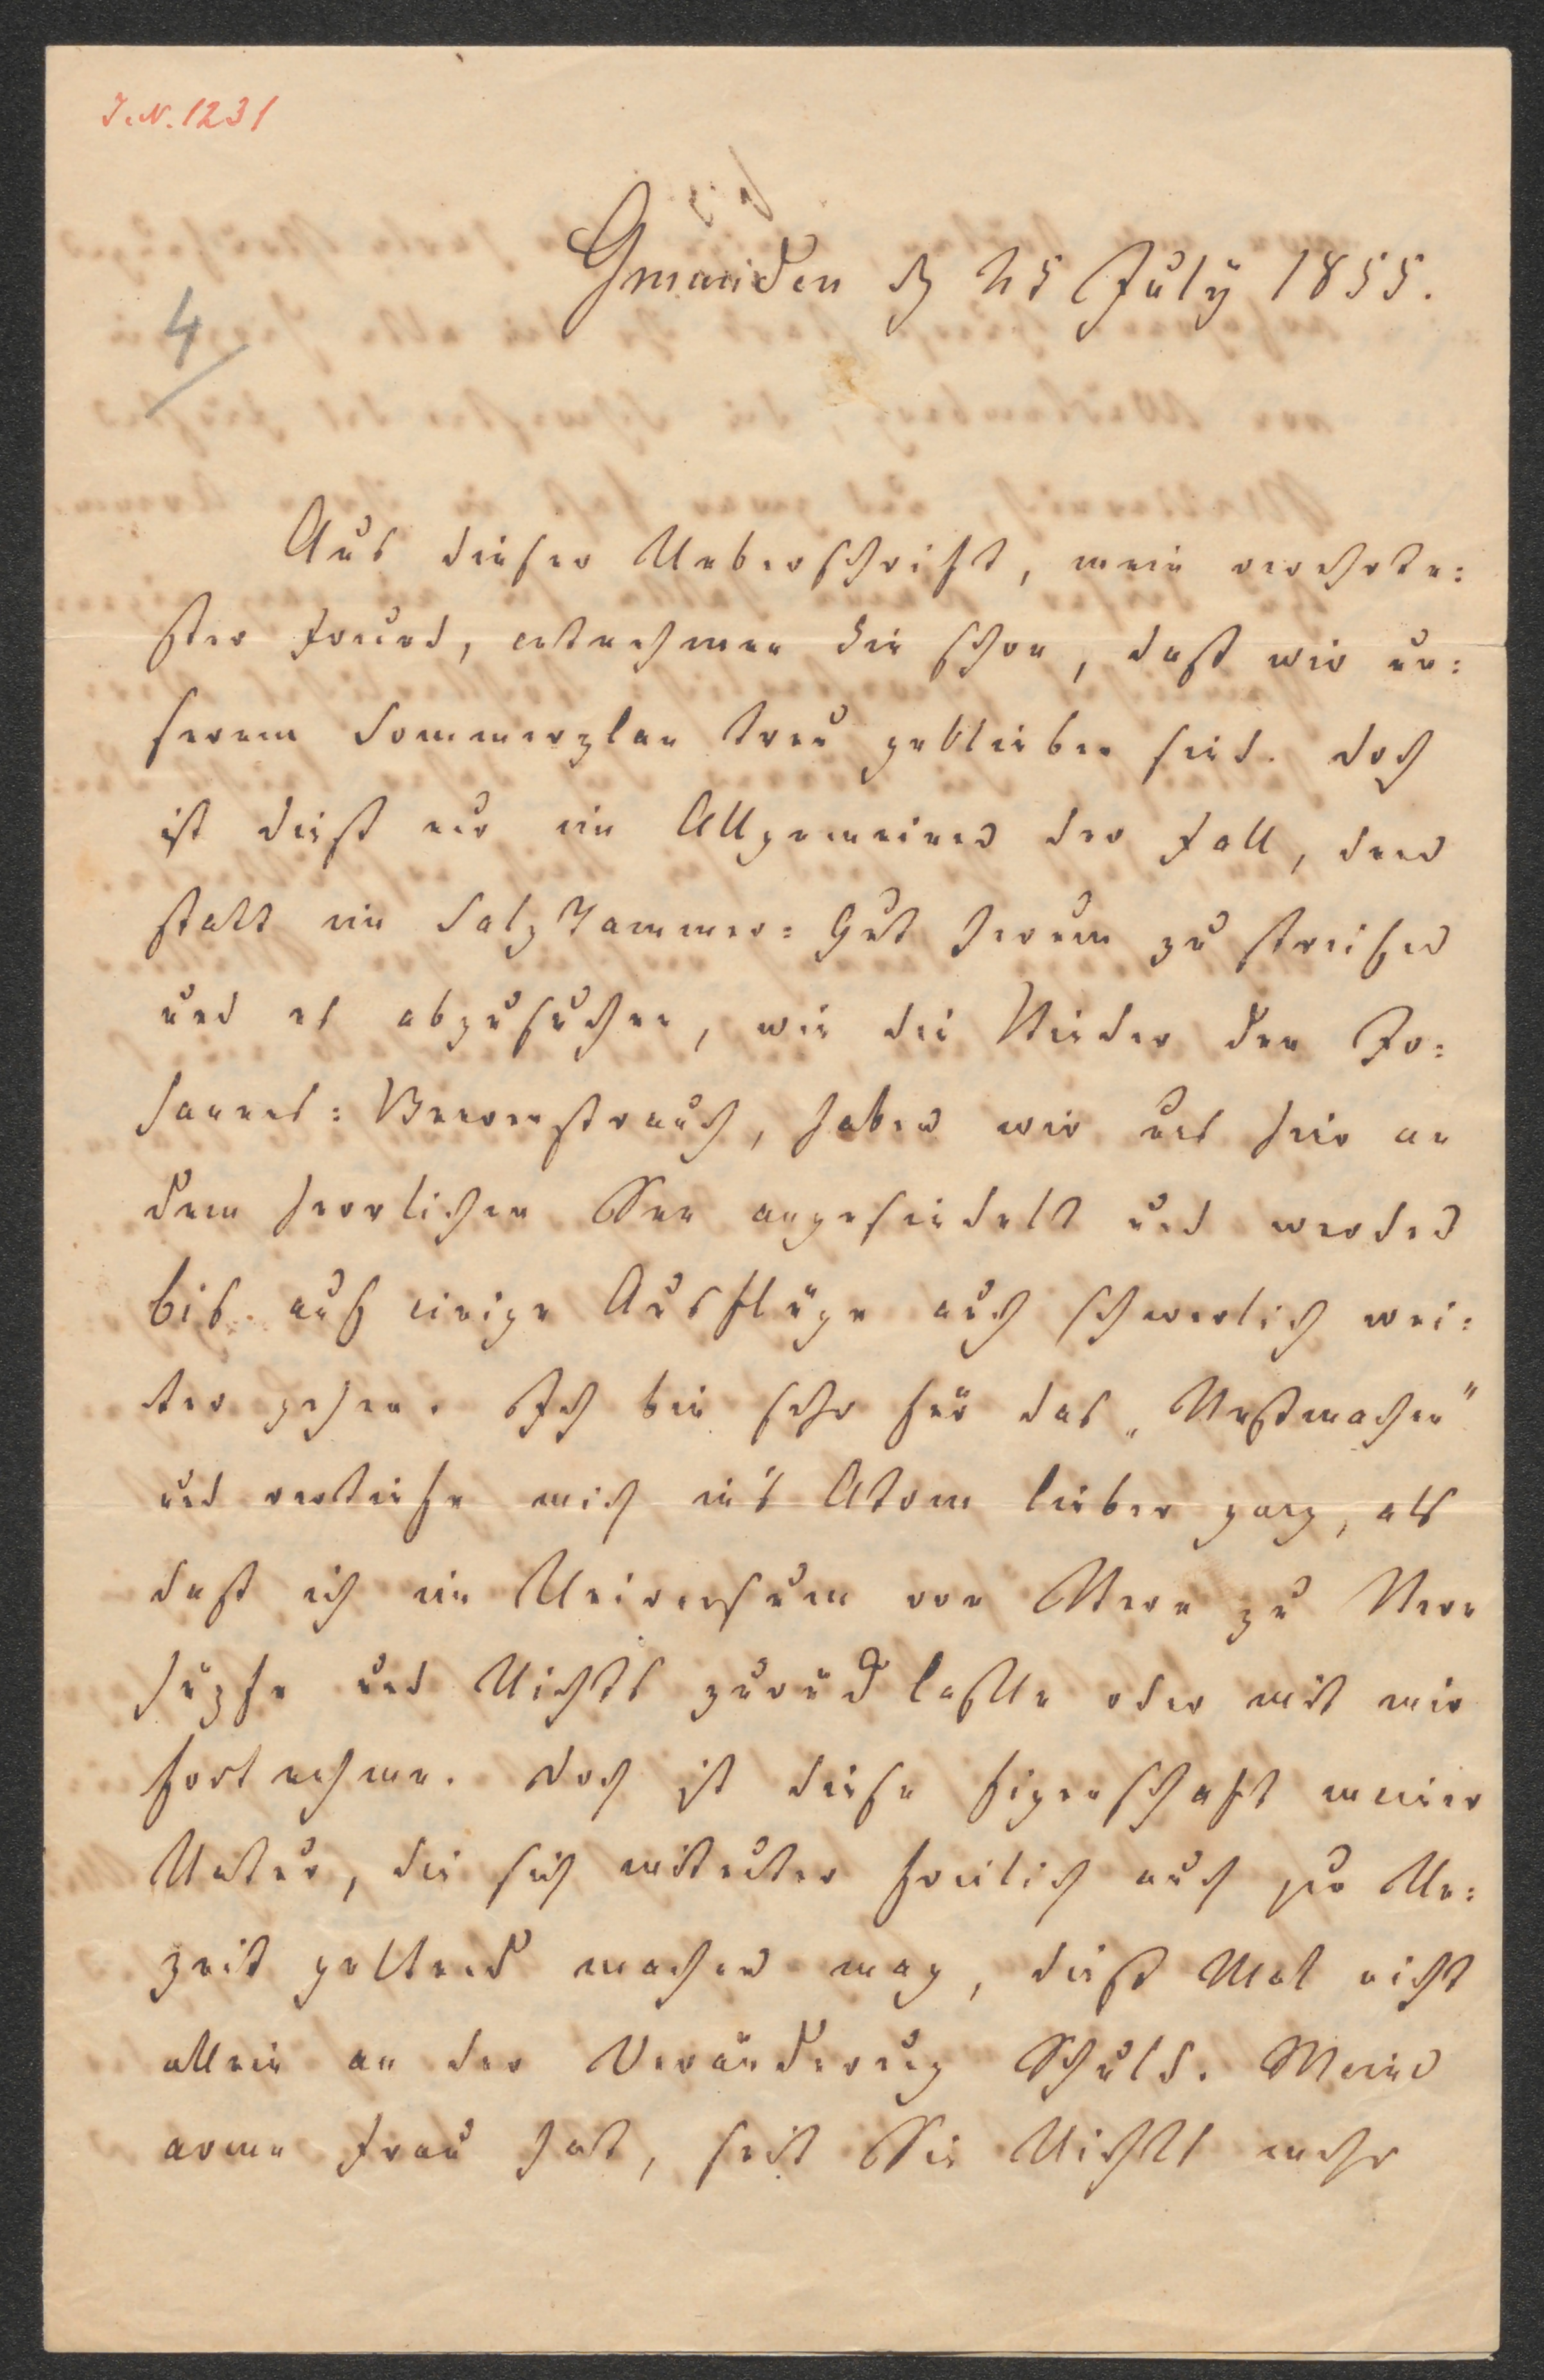 I.N. 1231
4
Gmunden d 25 July 1855.
Aus dieser Ueberschrift, mein verehrte=
ster Freund, entnehmen Sie schon, daß wir un=
serem Sommerplan treu geblieben sind. Doch
ist dieß nur im Allgemeinen der Fall, denn
statt im Salzkammer=Gut herum zu streifen
und es abzusuchen, wie die Kinder den Jo=
hannes=Beerenstrauch, haben wir uns hier an
dem herrlichen See angesiedelt und werden
bis auf einige Ausflüge auch schwerlich wei=
ter gehen. Ich bin sehr für das „Nestmachen"
und vertiefe mich in's Atom lieber ganz, als
daß ich im Universum von Stern zu Stern
hüpfe und Nichts zurück lasse oder mit mir
fort nehme. Doch ist diese Eigenschaft meiner
Natur, die sich mitunter freilich auch zur Un=
zeit geltend machen mag, dieß Mal nicht
allein an der Veränderung Schuld. Meine
arme Frau hat, seit Sie Nichts mehr